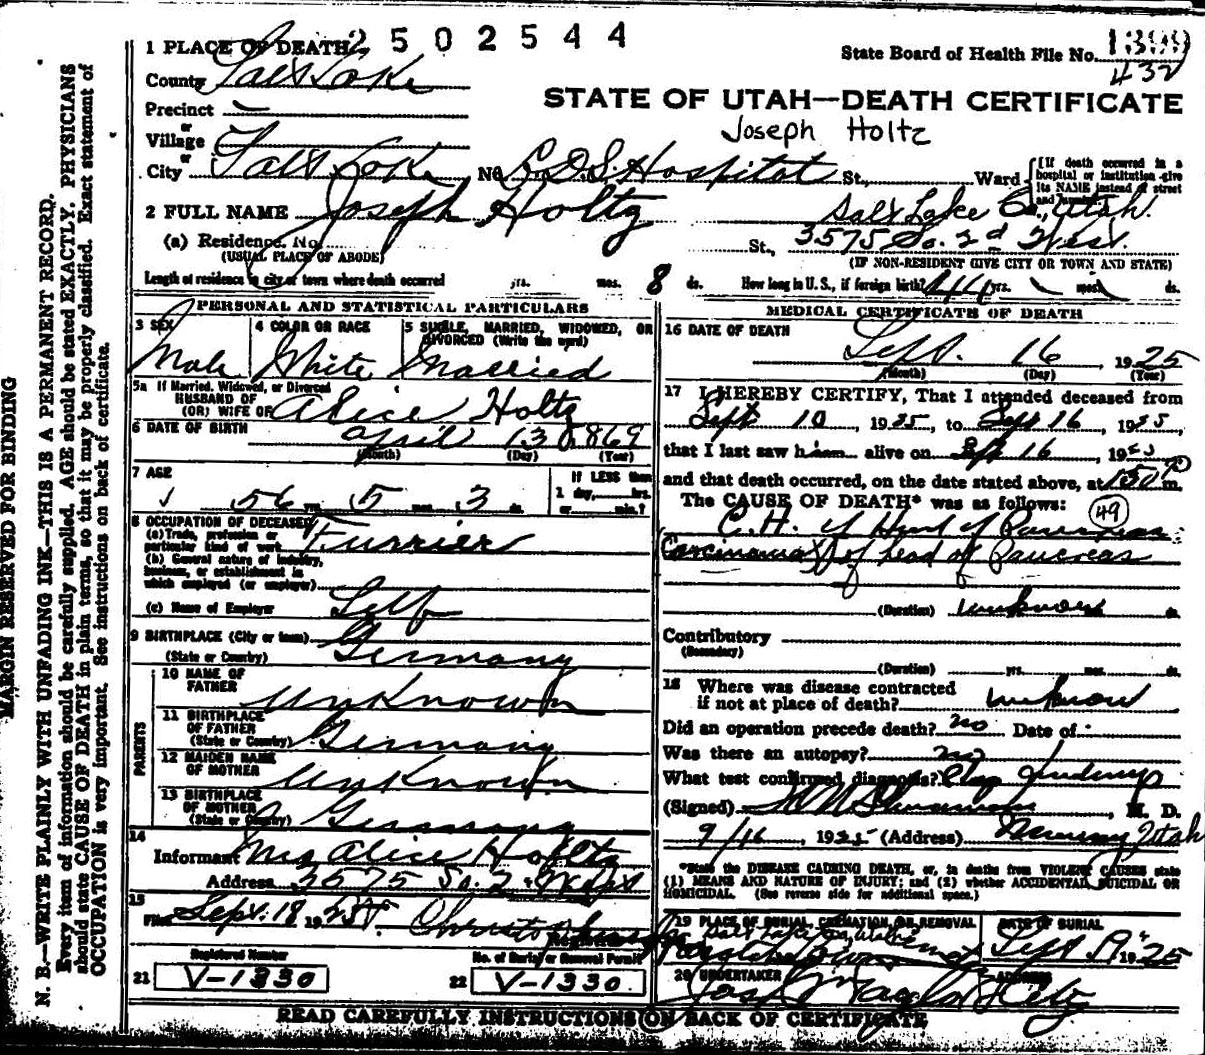 2502544
1 PLACE OF DEATH
State Board of Health File No.
432
County Salt Lake
STATE OF UTAH—DEATH CERTIFICATE
Precinct —
Joseph Holtz
or
Village
or
City Salt Lake No L.D.S Hospital St., Ward
(If death occurred in a hospital or institution give its NAME instead of street and number)
2 FULL NAME Joseph Holtz
Salt Lake Co., Utah.
(a) Residence. No. St., 3575 So. 2d West.
(USUAL PLACE OF ABODE) (IF NON-RESIDENT GIVE CITY OR TOWN AND STATE)
Length of residence in city or town where death occurred yrs. mos. 8 ds. How long in U. S., if foreign birth? 44 yrs. mos. ds.
PERSONAL AND STATISTICAL PARTICULARS
3 SEX
Male
4 COLOR OR RACE
White
5 SINGLE, MARRIED, WIDOWED, OR DIVORCED (Write the word)
Married
5a If Married, Widowed, or Divorced
HUSBAND OF
(OR) WIFE OF Alice Holtz
6 DATE OF BIRTH April 13 1869
(Month) (Day) (Year)
7 AGE
56 yrs. 5 mos. 3 ds.
If LESS than
1 day, hrs.
or min.?
8 OCCUPATION OF DECEASED
(a) Trade, profession or
particular kind of work Furrier
(b) General nature of industry,
business, or establishment in
which employed (or employer)
(c) Name of Employer Self
9 BIRTHPLACE (City or town)
(State or Country) Germany
PARENTS
10 NAME OF
FATHER Unknown
11 BIRTHPLACE
OF FATHER
(State or Country) Germany
12 MAIDEN NAME
OF MOTHER Unknown
13 BIRTHPLACE
OF MOTHER
(State or Country) Germany
14
Informant Mrs Alice Holtz
Address 3575 So. 2d West
15
Filed Sept. 18 1925
Registrar
Registered Number
21 V-1330
No. of Burial or Removal Permit
22 V-1330
MEDICAL CERTIFICATE OF DEATH
16 DATE OF DEATH
Sept. 16, 1925
(Month) (Day) (Year)
17 I HEREBY CERTIFY, That I attended deceased from
Sept 10, 1925, to Sept 16, 1925,
that I last saw him alive on Sept 16, 1925
and that death occurred, on the date stated above, at 150 P m.
The CAUSE OF DEATH* was as follows: 49
C.H. of Head of Pancreas
Carcinoma of head of Pancreas
(Duration) unknown ds.
Contributory
(Secondary)
(Duration) yrs. mos. ds.
18 Where was disease contracted
if not at place of death? unknown
Did an operation precede death? no Date of
Was there an autopsy? no
What test confirmed diagnosis?
(Signed) , M. D.
9/16 1925 (Address) Murray Utah
*State the DISEASE CAUSING DEATH, or, in deaths from VIOLENT CAUSES state
(1) MEANS AND NATURE OF INJURY; and (2) whether ACCIDENTAL, SUICIDAL OR
HOMICIDAL. (See reverse side for additional space.)
19 PLACE OF BURIAL, CREMATION OR REMOVAL
DATE OF BURIAL
Sept 19 1925
20 UNDERTAKER
ADDRESS
READ CAREFULLY INSTRUCTIONS ON BACK OF CERTIFICATE
MARGIN RESERVED FOR BINDING
N. B.—WRITE PLAINLY WITH UNFADING INK—THIS IS A PERMANENT RECORD.
Every item of information should be carefully supplied. AGE should be stated EXACTLY. PHYSICIANS
should state CAUSE OF DEATH in plain terms, so that it may be properly classified. Exact statement of
OCCUPATION is very important. See instructions on back of certificate.